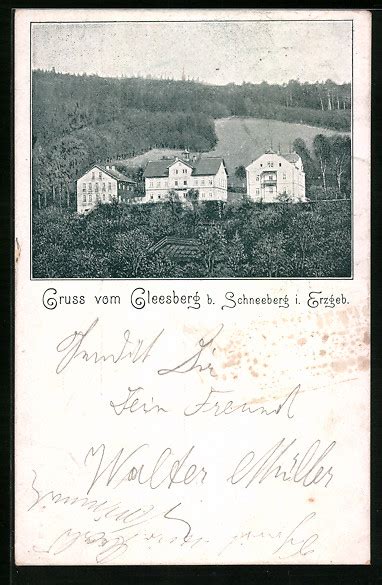 Gruss vom Gleesberg b. Schneeberg i. Erzgeb.
Sendet Dir
Dein Freund
Walter Müller